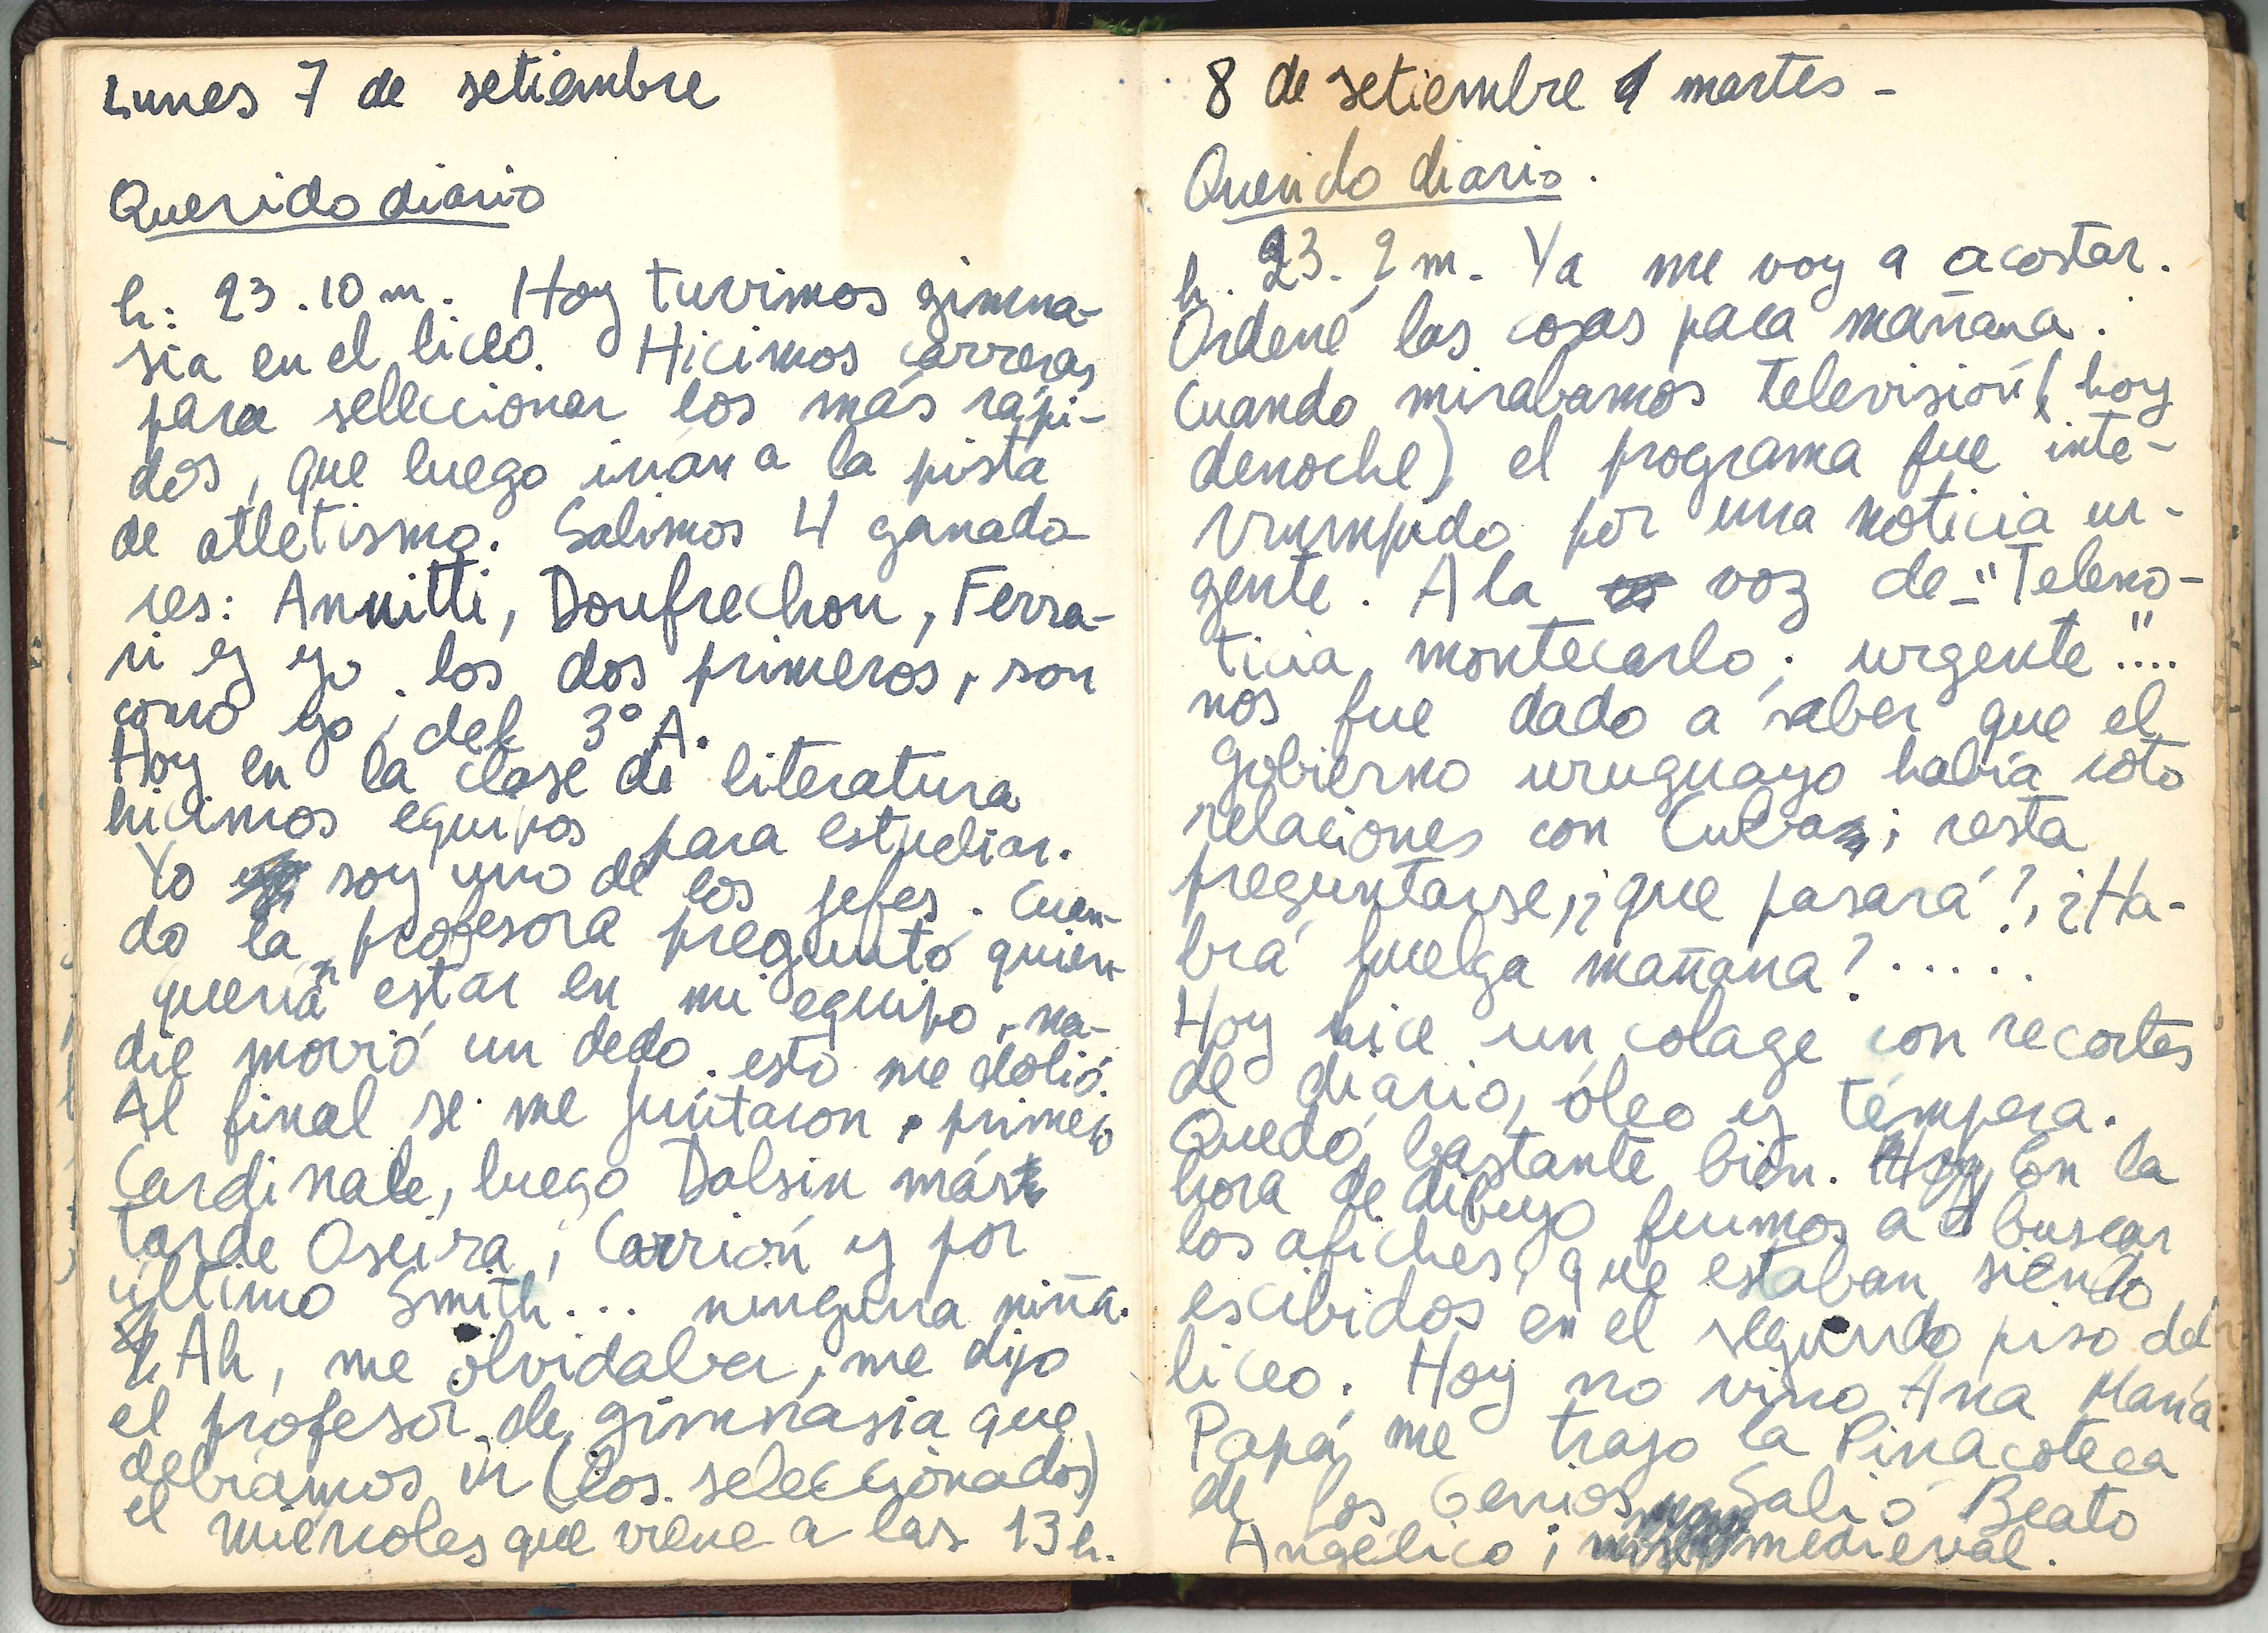 Lunes 7 de setiembre
Querido diario
h: 23.10 m. Hoy tuvimos gimna-
sia en el liceo. Hicimos carreras
para seleccionar los más rápi-
dos, que luego irán a la pista
de atletismo. Salimos 4 ganado
res: Annitti, Doufrechou, Ferra-
ri y yo. los dos primeros, son
como yo, del 3° A.
Hoy en la clase de literatura
hicimos equipos para estudiar.
Yo soy uno de los jefes. Cuan-
do la profesora preguntó quien
querían estar en mi equipo, na-
die movió un dedo. esto me dolió.
Al final se me juntaron, primero
Cardinale, luego Dalsin más
tarde Oseira, Carrión y por
último Smith... ninguna niña.
Ah, me olvidaba, me dijo
el profesor de gimnasia que
debíamos ir (los seleccionados)
el miércoles que viene a las 13 h.
8 de setiembre martes -
Querido diario.
h. 23. 2 m. Ya me voy a acostar.
Ordené las cosas para mañana.
Cuando mirabamos televisión (hoy
denoche) el programa fue inte-
rrumpido por una noticia ur-
gente. A la voz de "Teleno-
ticia montecarlo; urgente"....
nos fue dado a saber que el
gobierno uruguayo había roto
relaciones con Cuba; resta
preguntarse, ¿que pasará?, ¿Ha-
brá huelga mañana?.....
Hoy hice un colage con recortes
de diario, óleo y témpera.
Quedó bastante bien. En la
hora de dibujo fuimos a buscar
los afiches, que estaban siendo
escibidos en el segundo piso del
liceo. Hoy no vino Ana María
Papá me trajo la Pinacoteca
de los Genios Salió Beato
Angélico; medieval.